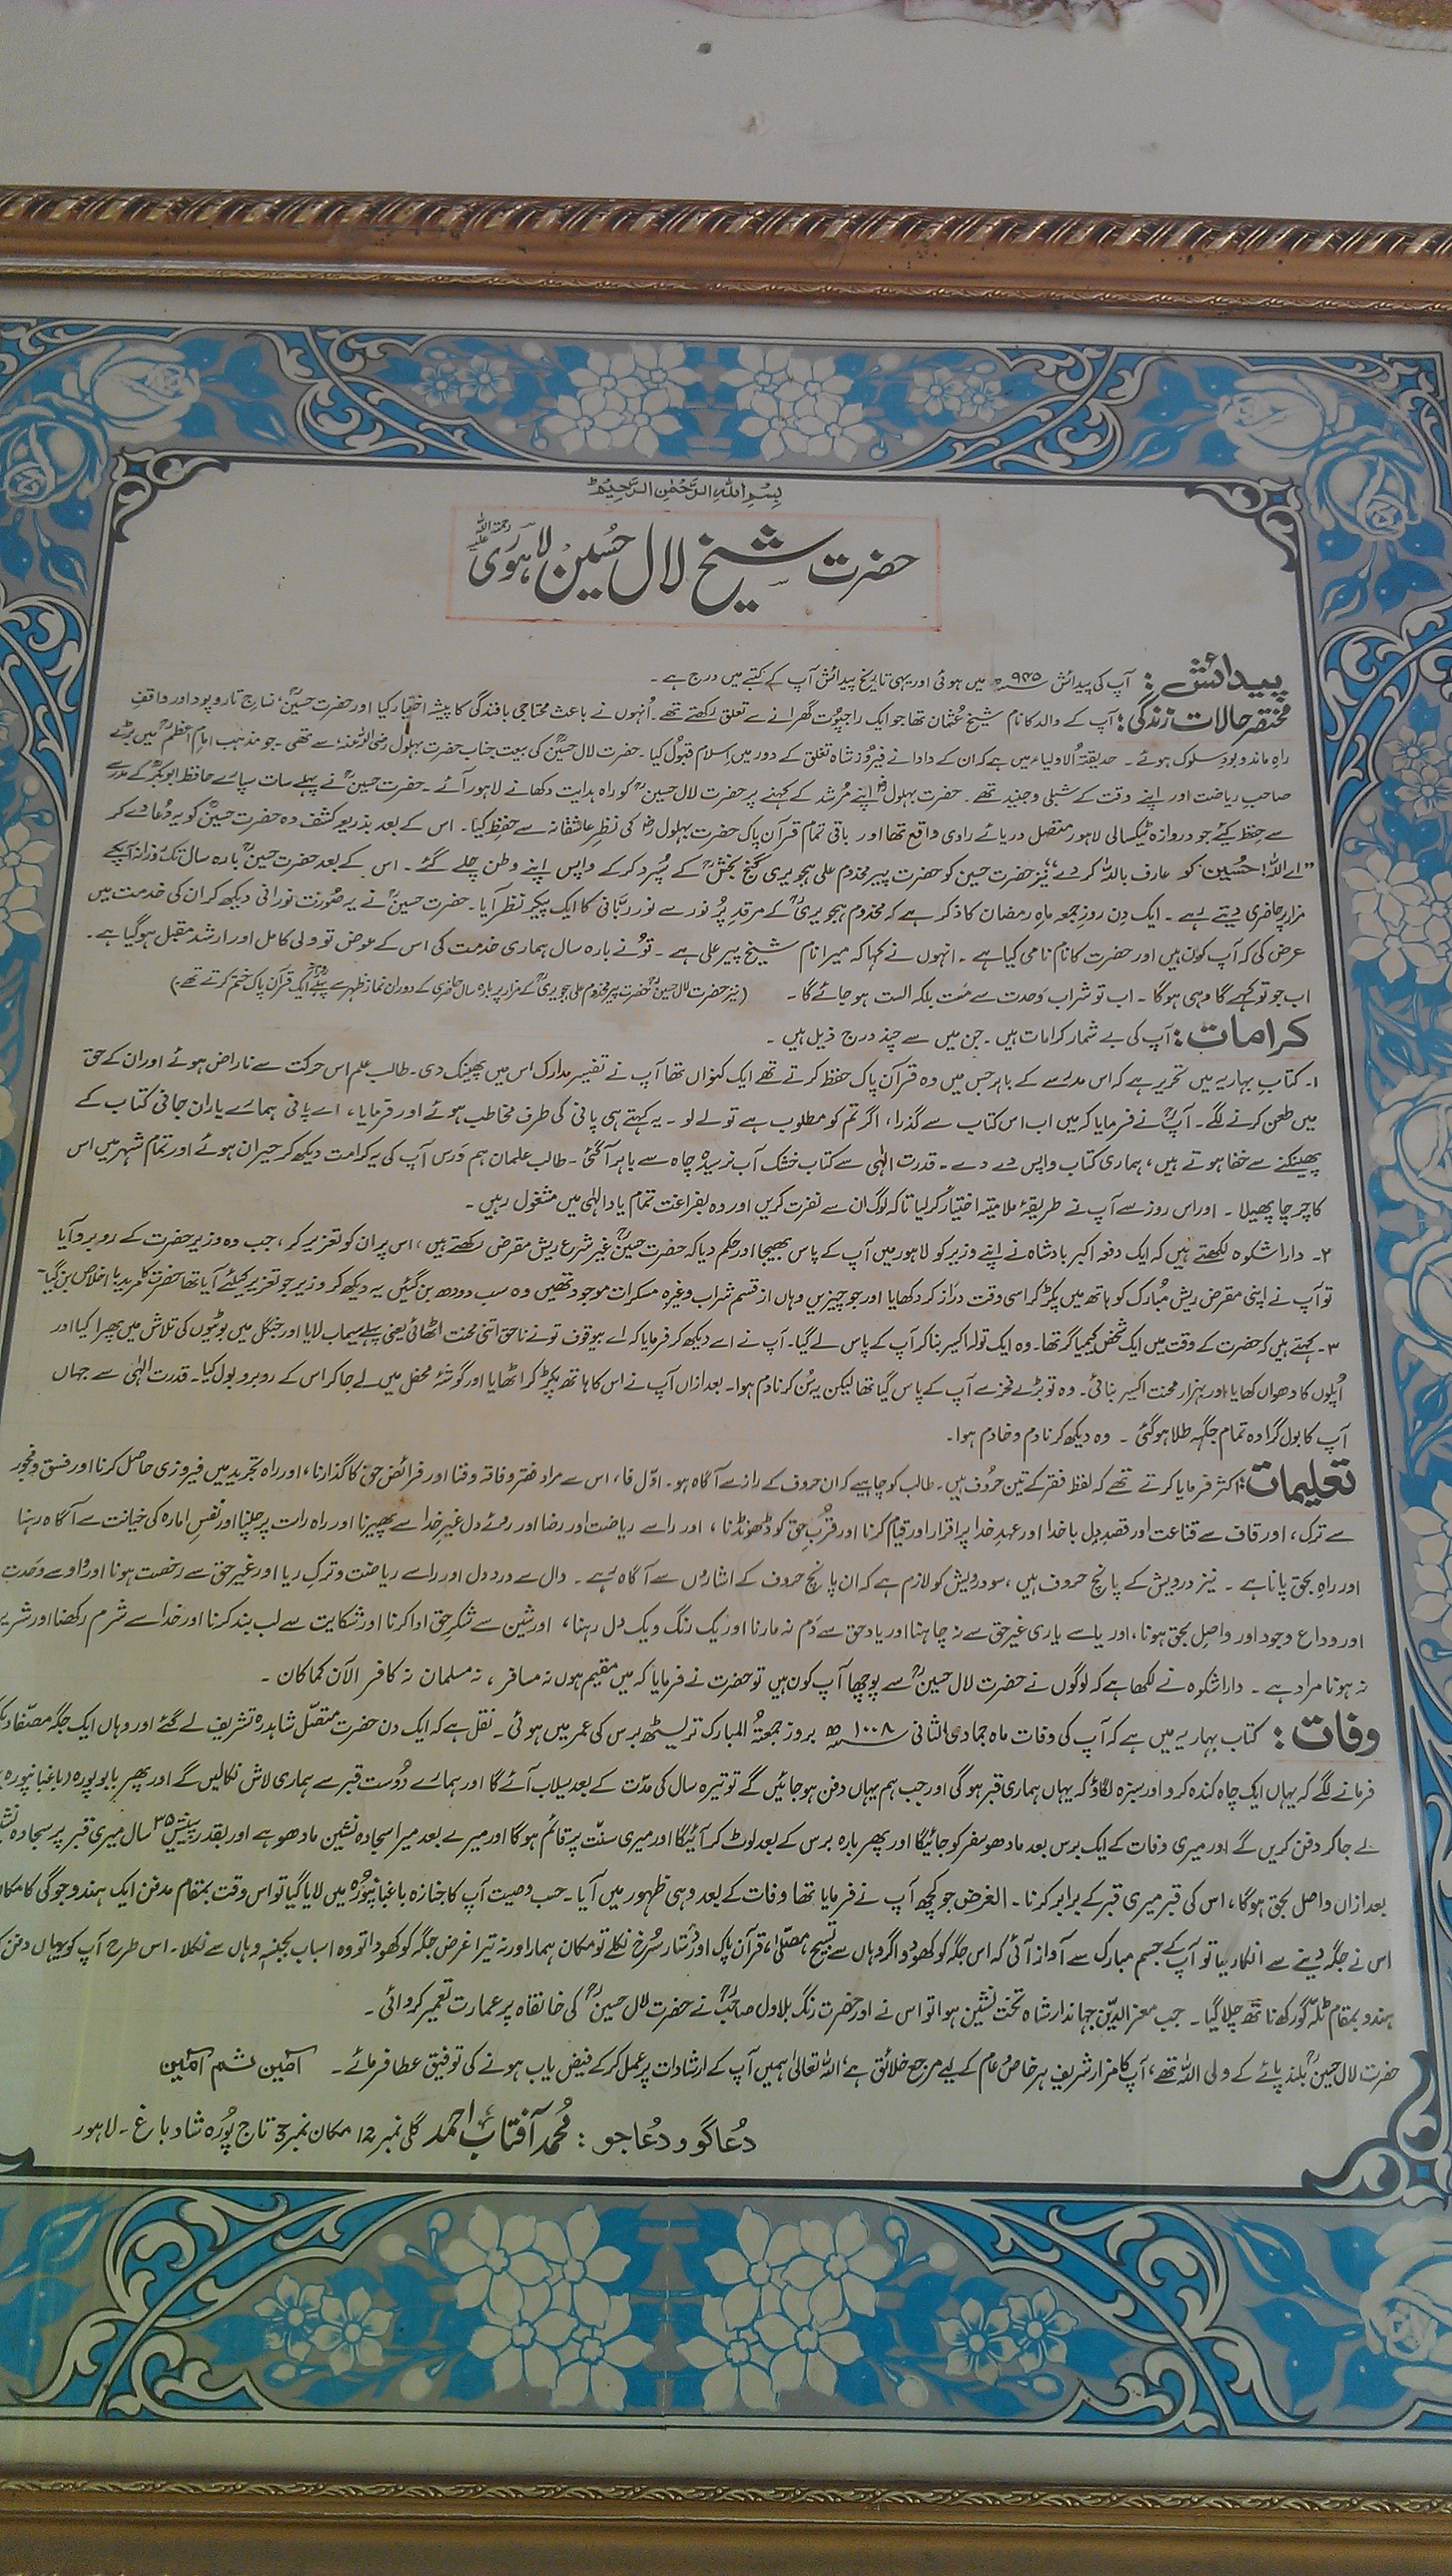 بِسْمِ اللهِ الرَّحْمٰنِ الرَّحِيْمِ
حضرت شیخ لال حسین لاہوری رحمۃ اللہ علیہ
پیدائش : آپ کی پیدائش ۹۴۵ھ میں ہوئی اور یہی تاریخ پیدائش آپ کے کتبے میں درج ہے ۔
مختصر حالات زندگی : آپ کے والد کا نام شیخ عثمان تھا جو ایک راجپوت گھرانے سے تعلق رکھتے تھے ۔ اُنہوں نے باعث محتاجی بافندگی کا پیشہ اختیار کیا اور حضرت حسینؒ، نساج تار و پود اور واقفِ
راہ ماند و بود سلوک ہوئے ۔ حدیقتہ الاولیاء میں ہے کہ ان کے دادا نے فیروز شاہ تغلق کے دور میں اسلام قبول کیا ۔ حضرت لال حسینؒ کی بیعت جناب حضرت بہلول رضی اللہ عنہٗ سے تھی ۔ جو مذہب امام اعظمؒ میں بڑے
صاحبِ ریاضت اور اپنے وقت کے شبلی و جنید تھے ۔ حضرت بہلولؒ اپنے مُرشد کے کہنے پر حضرت لال حسینؒ کو راہ ہدایت دکھانے لاہور آئے ۔ حضرت حسینؒ نے پہلے سات سپارے حافظ ابوبکرؒ کے مدرسے
سے حفظ کیے جو دروازہ ٹیکسالی لاہور متصل دریائے راوی واقع تھا اور باقی تمام قرآن پاک حضرت بہلولؒ کی نظرِ عاشقانہ سے حفظ کیا ۔ اس کے بعد بذریعہ کشف وہ حضرت حسینؒ کو یہ دُعا دے کر
"اے اللہ! حُسین کو عارف باللہ کر دے" نیز حضرت حسین کو حضرت پیر مخدوم علی ہجویری گنج بخشؒ کے سپرد کر کے واپس اپنے وطن چلے گئے ۔ اس کے بعد حضرت حسینؒ بارہ سال تک روزانہ آپکے
مزار پر حاضری دیتے رہے ۔ ایک دِن روزِ جمعہ ماہِ رمضان کا ذکر ہے کہ مخدوم ہجویریؒ کے مرقدِ پُر نور سے نور ربّانی کا ایک پیکر نظر آیا ۔ حضرت حسینؒ نے یہ صُورت نورانی دیکھ کر ان کی خدمت میں
عرض کی کہ آپ کون ہیں اور حضرت کا نام نامی کیا ہے ۔ انہوں نے کہا کہ میرا نام شیخ پیر علی ہے ۔ تُو نے بارہ سال ہماری خدمت کی اس کے عوض تو ولی کامل اور ارشد مقبل ہو گیا ہے ۔
اب جو تو کہے گا وہی ہو گا ۔ اب تو شراب وَحدت سے مَست بلکہ الست ہو جائے گا ۔ (نیز حضرت لال حسینؒ حضرت پیر مخدوم علی ہجویریؒ کے مزار پر بارہ سال حاضری کے دوران نماز ظہر سے پہلے روزانہ ایک قرآن پاک ختم کرتے تھے ۔)
کرامات : آپ کی بے شمار کرامات ہیں ۔ جن میں سے چند درج ذیل ہیں ۔
۱۔ کتاب بہاریہ میں تحریر ہے کہ اس مدرسے کے باہر جس میں وہ قرآن پاک حفظ کرتے تھے ایک کنواں تھا آپ نے تفسیر مدارک اس میں پھینک دی ۔ طالب علم اس حرکت سے ناراض ہوئے اور ان کے حق
میں طعن کرنے لگے ۔ آپؒ نے فرمایا کہ میں اب اس کتاب سے گذرا ، اگر تم کو مطلوب ہے تو لے لو ۔ یہ کہتے ہی پانی کی طرف مخاطب ہوئے اور فرمایا ، اے پانی ہمارے یاران جانی کتاب کے
پھینکنے سے خفا ہوتے ہیں ، ہماری کتاب واپس دے دے ۔ قدرت الٰہی سے کتاب خشک آب نرسیدہ چاہ سے باہر آ گئی ۔ طالب علمان ہم دَرس آپ کی یہ کرامت دیکھ کر حیران ہوئے اور تمام شہر میں اس
کا چرچا پھیلا ۔ اور اس روز سے آپ نے طریقۂ ملامتیہ اختیار کر لیا تاکہ لوگ ان سے نفرت کریں اور وہ بفراغت تمام یاد الٰہی میں مشغول رہیں ۔
۲۔ دارا شکوہ لکھتے ہیں کہ ایک دفعہ اکبر بادشاہ نے اپنے وزیر کو لاہور میں آپ کے پاس بھیجا اور حکم دیا کہ حضرت حسینؒ غیر شرع ریش مقرض رکھتے ہیں ، اس پر ان کو تعزیر کر ، جب وہ وزیر حضرت کے روبرو آیا
تو آپ نے اپنی مقرض ریش مُبارک کو ہاتھ میں پکڑ کر اسی وقت دراز کر دکھایا اور جو چیزیں وہاں از قسم شراب وغیرہ مسکرات موجود تھیں وہ سب دودھ بن گئیں یہ دیکھ کر وزیر جو تعزیر کیلئے آیا تھا حضرت کا مرید با اخلاص بن گیا ۔
۳۔ کہتے ہیں کہ حضرت کے وقت میں ایک شخص کیمیا گر تھا ۔ وہ ایک تولہ اکسیر بنا کر آپ کے پاس لے گیا ۔ آپ نے اسے دیکھ کر فرمایا کہ اے بیوقوف تو نے ناحق اتنی محنت اٹھائی یعنی پہلے سیماب لایا اور جنگل میں بوٹیوں کی تلاش میں پھرا کیا اور
اُپلوں کا دھواں کھایا اور بہزار محنت اکسیر بنائی ۔ وہ تو بڑے فخر سے آپ کے پاس گیا تھا لیکن یہ سُن کر نادم ہوا ۔ بعد ازاں آپ نے اس کا ہاتھ پکڑ کر اٹھایا اور گوشۂ محفل میں لے جا کر اس کے روبرو بول کیا ۔ قدرت الٰہی سے جہاں
آپ کا بول گرا وہ تمام جگہ طلا ہو گئی ۔ وہ دیکھ کر نادم و خادم ہوا ۔
تعلیمات : اکثر فرمایا کرتے تھے کہ لفظ فقر کے تین حرُوف ہیں ۔ طالب کو چاہیے کہ ان حروف کے راز سے آگاہ ہو ۔ اوّل فا ، اس سے مراد فقر و فاقہ و فنا اور فرائض حق کا گذارنا ، اور راہ تجرید میں فیروزی حاصل کرنا اور فسق و فجور
سے ترک ، اور قاف سے قناعت اور قصدِ دِل باخدا اور عہدِ خدا پر اقرار اور قیام کرنا اور قُربِ حق کو ڈھونڈنا ، اور را سے ریاضت اور رضا اور روئے دل غیرِ خدا سے پھیرنا اور راہ راست پر چلنا اور نفسِ امارہ کی خیانت سے آگاہ رہنا
اور راہِ بحق پانا ہے ۔ نیز درویش کے پانچ حروف ہیں ، سو درویش کو لازم ہے کہ ان پانچ حروف کے اشاروں سے آگاہ رہے ۔ دال سے درد دل اور را سے ریاضت و ترکِ ریا اور غیر حق سے رخصت ہونا اور واؤ سے وَحدت
اور وداع وجود اور واصل بحق ہونا ، اور یا سے یاری غیر حق سے نہ چاہنا اور یاد حق سے دَم نہ مارنا اور یک رنگ و یک دل رہنا ، اور شین سے شکرِ حق ادا کرنا اور شکایت سے لب بند کرنا اور خدا سے شرم رکھنا اور
نہ ہونا مراد ہے ۔ دارا شکوہ نے لکھا ہے کہ لوگوں نے حضرت لال حسینؒ سے پوچھا آپ کون ہیں تو حضرت نے فرمایا کہ میں مقیم ہوں نہ مسافر ، نہ مسلمان نہ کافر الآن کما کان ۔
وفات : کتاب بہاریہ میں ہے کہ آپ کی وفات ماہ جمادی الثانی ۱۰۰۸ھ بروز جمعتہُ المبارک تریسٹھ برس کی عمر میں ہوئی ۔ نقل ہے کہ ایک دن حضرت متصل شاہدرہ تشریف لے گئے اور وہاں ایک جگہ مصفّا
فرمانے لگے کہ یہاں ایک چاہ کندہ کرو اور سبزہ لگاؤ کہ یہاں ہماری قبر ہو گی اور جب ہم یہاں دفن ہو جائیں گے تو تیرہ سال کی مدّت کے بعد سیلاب آئے گا اور ہمارے دوست قبر سے ہماری لاش نکالیں گے اور پھر بابو پورہ (باغبانپورہ)
لے جا کر دفن کریں گے اور میری وفات کے ایک برس بعد مادھو سفر کو جائیگا اور پھر بارہ برس کے بعد لوٹ کر آئیگا اور میری سنّت پر قائم ہو گا اور میرے بعد میرا سجادہ نشین مادھو ہے اور بقدر پینتیس ۳۵ سال میری قبر پر سجادہ
بعد ازاں واصل بحق ہو گا ، اس کی قبر میری قبر کے برابر کرنا ۔ الغرض جو کچھ آپ نے فرمایا تھا وفات کے بعد وہی ظہور میں آیا ۔ حسب وصیت آپ کا جنازہ باغبانپورہ میں لایا گیا تو اس وقت بمقام مدفن ایک ہندو جوگی کا مکان
اس نے جگہ دینے سے انکار کیا تو آپ کے جسم مبارک سے آواز آئی کہ اس جگہ کو کھودو اگر وہاں سے تسبیح مصلّٰی ، قرآن پاک اور دستار سُرخ نکلے تو مکان ہمارا ورنہ تیرا غرض جگہ کو کھودا تو وہ اسباب بجنسہٖ وہاں سے نکلا ۔ اس طرح آپ کو یہاں دفن
ہندو بمقام ٹلہ گورکھ ناتھ چلا گیا ۔ جب معز الدّین جہاندار شاہ تخت نشین ہوا تو اس نے اور حضرت رنگ بلاول صاحبؒ نے حضرت لال حسینؒ کی خانقاہ پر عمارت تعمیر کروائی ۔
حضرت لال حسینؒ بلند پائے کے ولی اللہ تھے ، آپ کا مزار شریف ہر خاص و عام کے لیے مرجع خلائق ہے ، اللہ تعالیٰ ہمیں آپ کے ارشادات پر عمل کر کے فیض یاب ہونے کی توفیق عطا فرمائے ۔ آمین ثم آمین
دُعا گو و دُعا جو : مُحمد آفتاب احمد گلی نمبر 12 مکان نمبر 3 تاج پُورہ شاد باغ ۔ لاہور